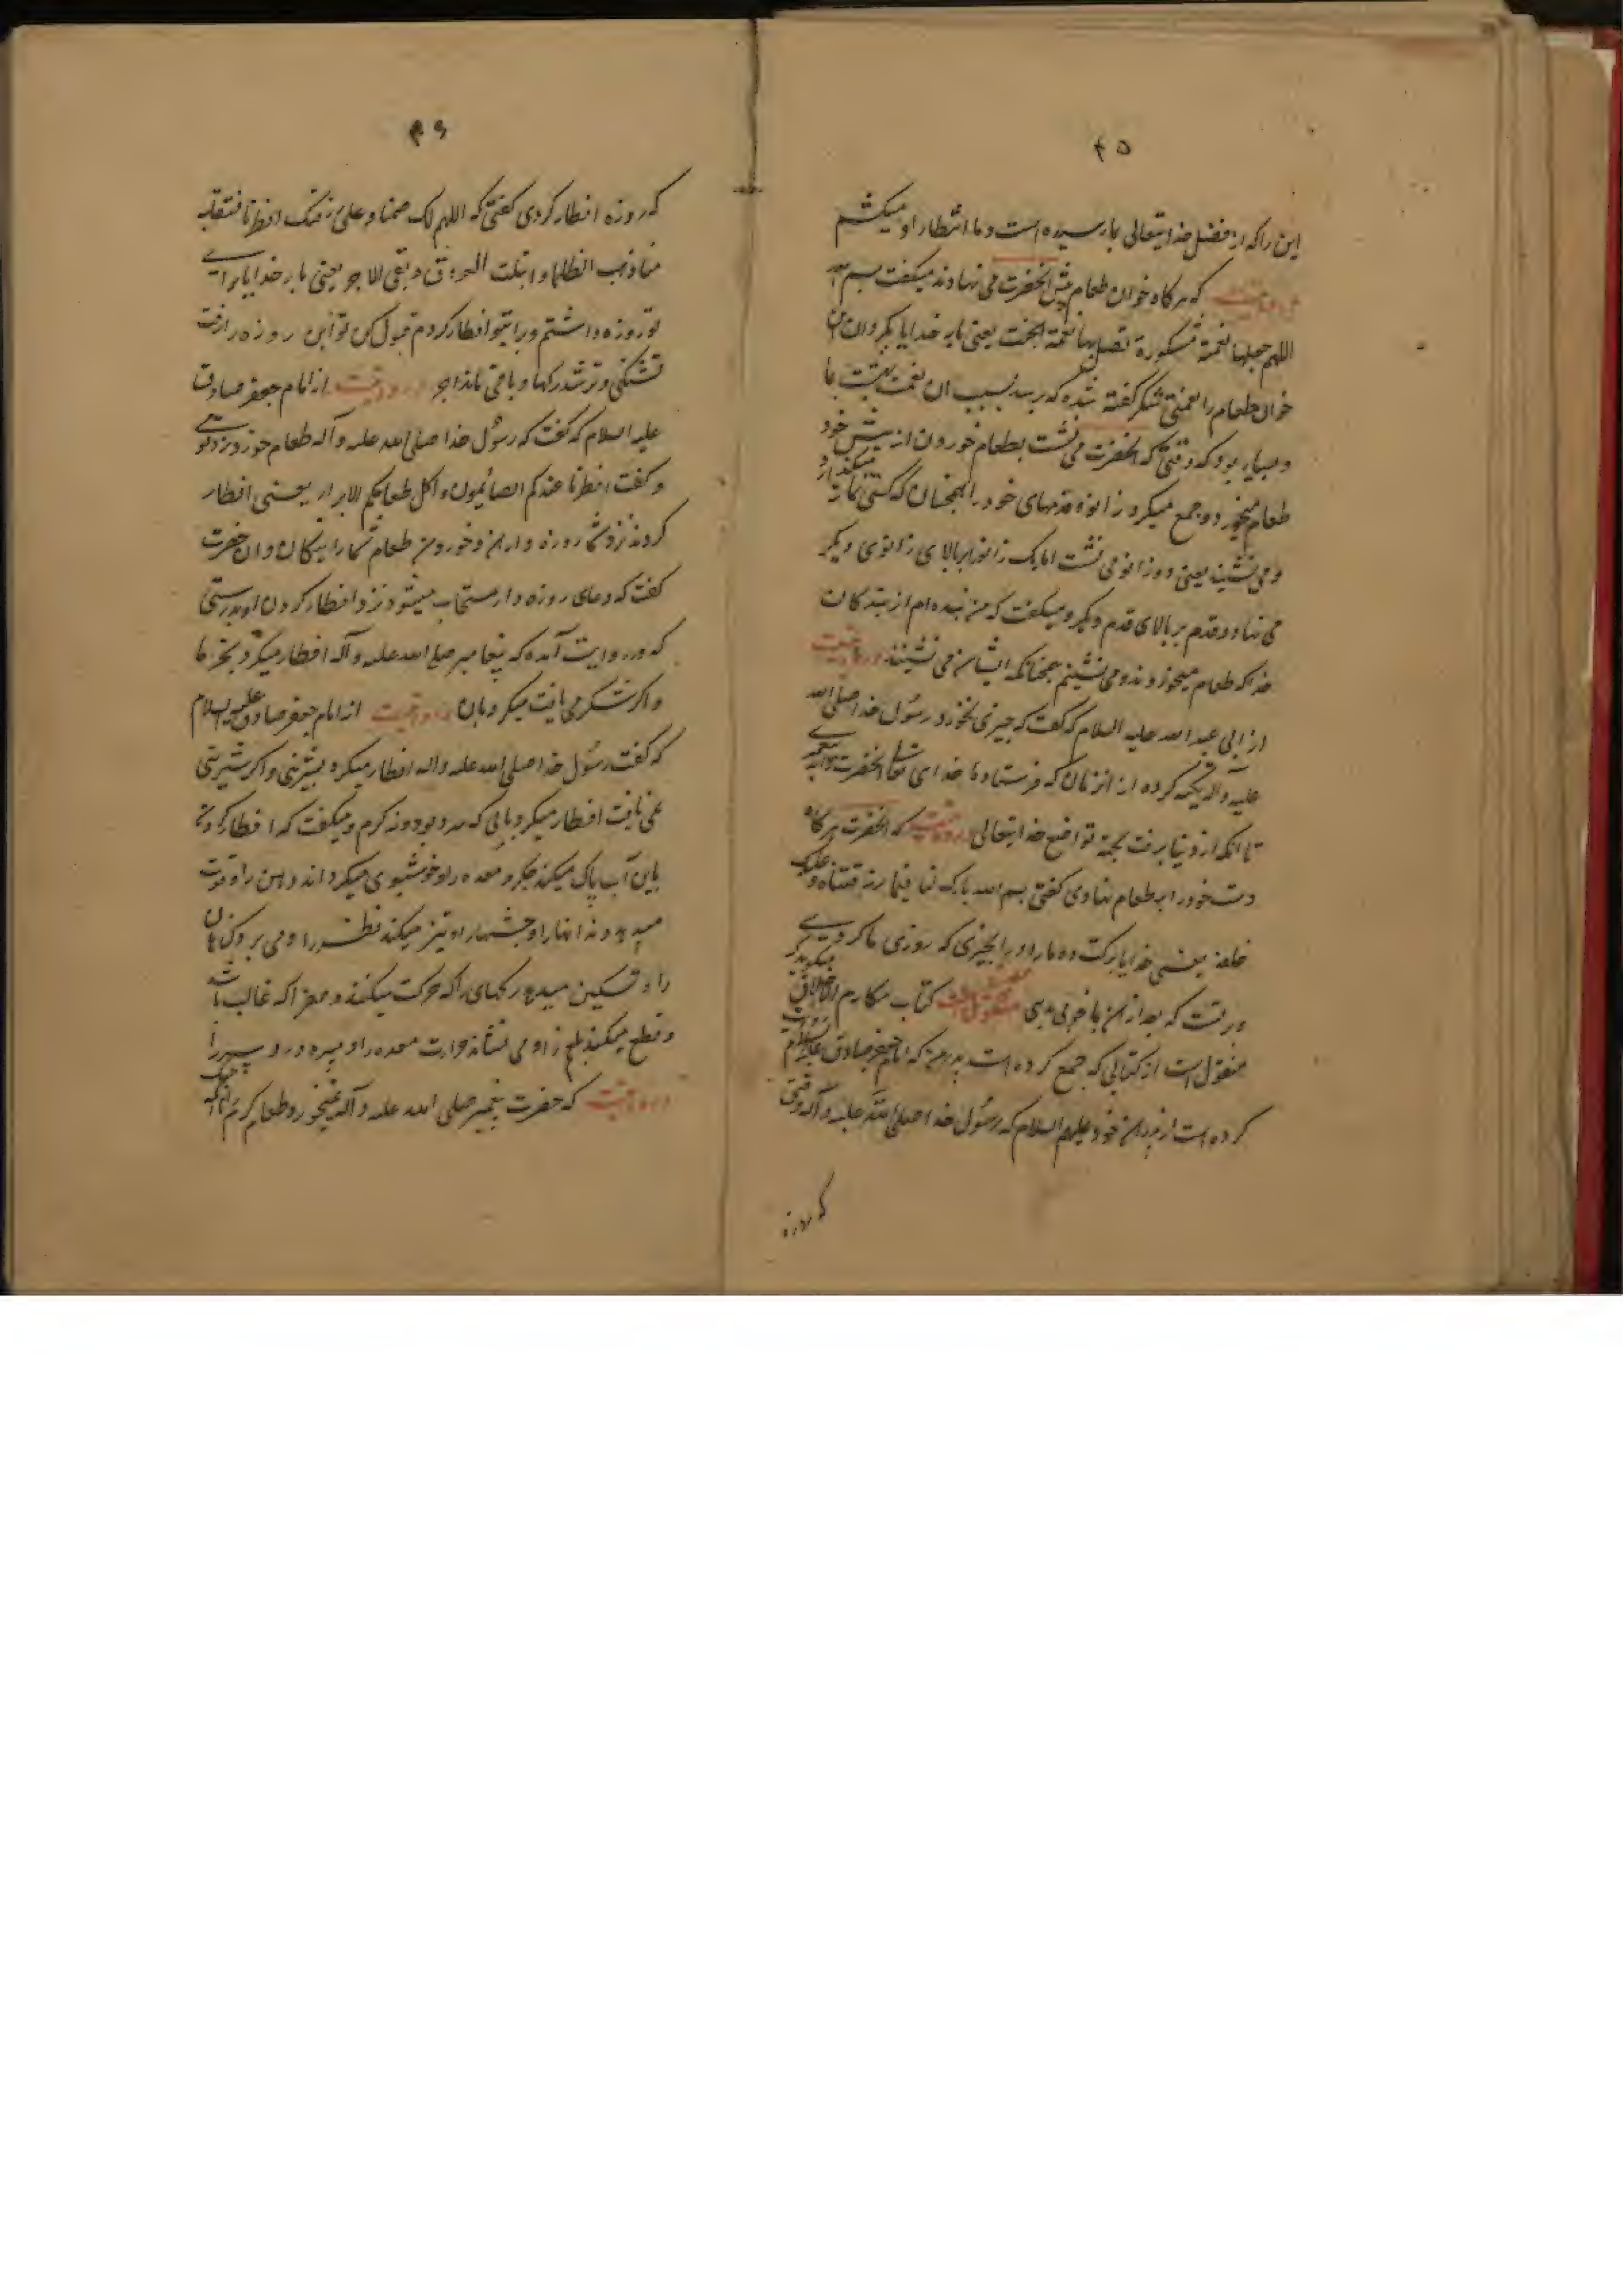 ۴۵
این را که از فضل خدایتعالی بما رسیده است و ما انتظار او میکشم
که هرکاه خوان طعام پیش انحضرت می نهادند میکفت بسم الله
اللهم اجعلها نعمة مشکورة تصل بها نعمة الجنت یعنی بار خدایا بکردان این
خوان طعام را نعمتی شکر کفته شده که برسد بسبب ان نعمت بهشت ما
و بسیار بود که وقتی که انحضرت می نشست بطعام خوردن از پیش خود
طعام میخورد و جمع میکرد زانو و قدمهای خود را همچنان که کسی نماز میکذارد
و می نشیند یعنی دو زانو می نشست اما یک زانو را بر بالای زانوی دیکر
می نهاد و قدم بر بالای قدم دیکر و میکفت که من بنده ام از بندکان
خدا که طعام میخورند و می نشینم همچنانکه ایشان می نشینند روایتست
از ابی عبد الله علیه السلام که کفت که چیزی نخورد رسول خدا صلی الله
علیه و آله تکیه کرده از ان زمان که فرستاد خدای تعالی انحضرت را
تا انکه از دنیا برفت بجهة تواضع خدایتعالی روایتست که انحضرت هرکاه
دست خود را بر طعام نهادی کفتی بسم الله بارک لنا فیما رزقتناه و علیک
خلفه یعنی خدایا برکت ده ما را در این چیزی که روزی ما کردی
و بر تست که بعد از این باز خوبی دهی منقول است کتاب مکارم الاخلاق
منقول است از کتابی که جمع کرده است پدر من که امام جعفر صادق علیه السلام روایت
کرده است از پدران خود علیهم السلام که رسول خدا صلی الله علیه و آله وقتی
که روزه
۴۶
که روزه افطار کردی کفتی که اللهم لک صمنا و علی رزقک افطرنا فتقبله
منا ذهب الظلما و ابتلت العروق و بقی الاجر یعنی بار خدایا برای
تو روزه داشتم و برای تو افطار کردم قبول کن تو این روزه را رفت
تشنکی و تر شد رکها و باقی ماند اجر روایتست از امام جعفر صادق
علیه السلام که کفت که رسول خدا صلی الله علیه و آله طعام خورد نزد قومی
و کفت افطرنا عندکم الصائمون و اکل طعامکم الابرار یعنی افطار
کردند نزد شما روزه داران و خوردند طعام شما را نیکان و ان حضرت
کفت که دعای روزه دار مستجاب میشود نزد افطار کردن او بدرستی
که در روایت آمده که پیغامبر صلی الله علیه و آله افطار میکرد بخرما
و اکر شکر می یافت میکرد بان روایتست از امام جعفر صادق علیه السلام
که کفت رسول خدا صلی الله علیه و اله افطار میکرد بشیرینی و اکر شیرینی
نمی یافت افطار میکرد بابی که سرد بود و نه کرم و میکفت که افطار کردن
باین آب پاک میکند جکر و معده را و خوشبوی میکرداند دهن را و قوت
میدهد دندانها را و چشمها را و تیز میکند نظر را و می برد کناهان
را و تسکین میدهد رکهای را که حرکت میکنند و صفرا که غالب باشد
و قطع میکند بلغم را و می نشاند حرارت معده را و میبرد درد سر را
روایتست که حضرت پیغمبر صلی الله علیه و آله نمیخورد طعام کرم را تا آنکه